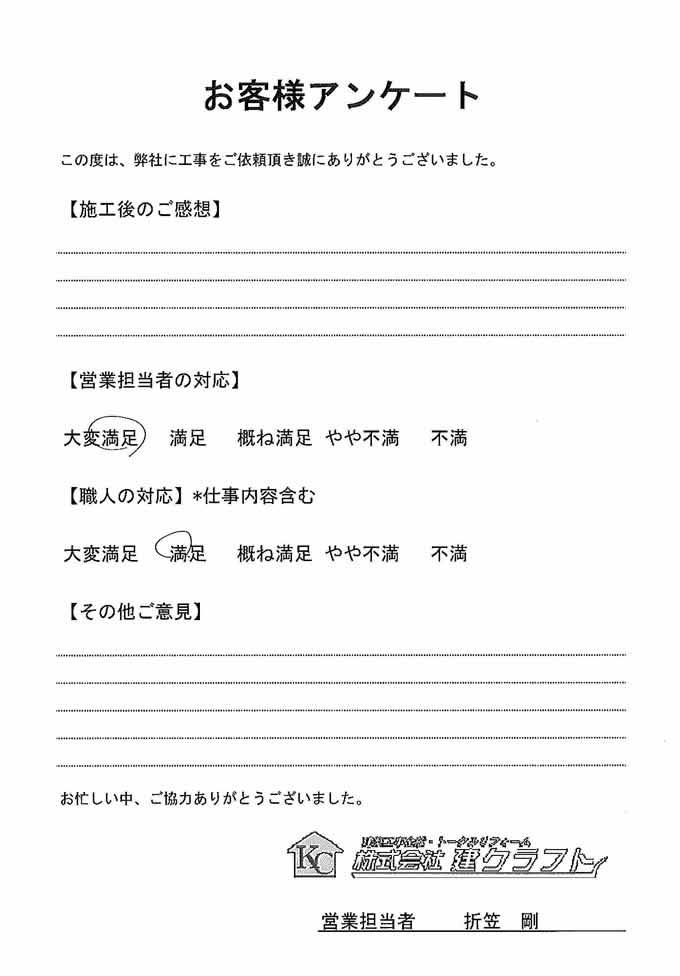 お客様アンケート
この度は、弊社に工事をご依頼頂き誠にありがとうございました。
【施工後のご感想】
【営業担当者の対応】
大変満足 満足 概ね満足 やや不満 不満
【職人の対応】*仕事内容含む
大変満足 満足 概ね満足 やや不満 不満
【その他ご意見】
お忙しい中、ご協力ありがとうございました。
KC
・トータルリフォーム
株式会社 建クラフト
営業担当者 折笠 剛